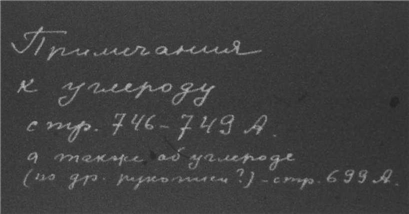 Примечания
к углероду
стр. 746-749 А.
а также об углероде
(по др. рукописи?) - стр. 699 А.